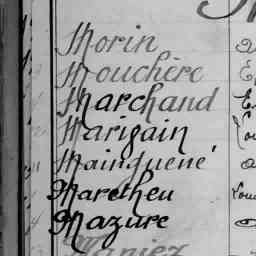 Morin
Mouchère
Marchand
Marigain
Mainguené
Maretheu
Mazure
Maniez